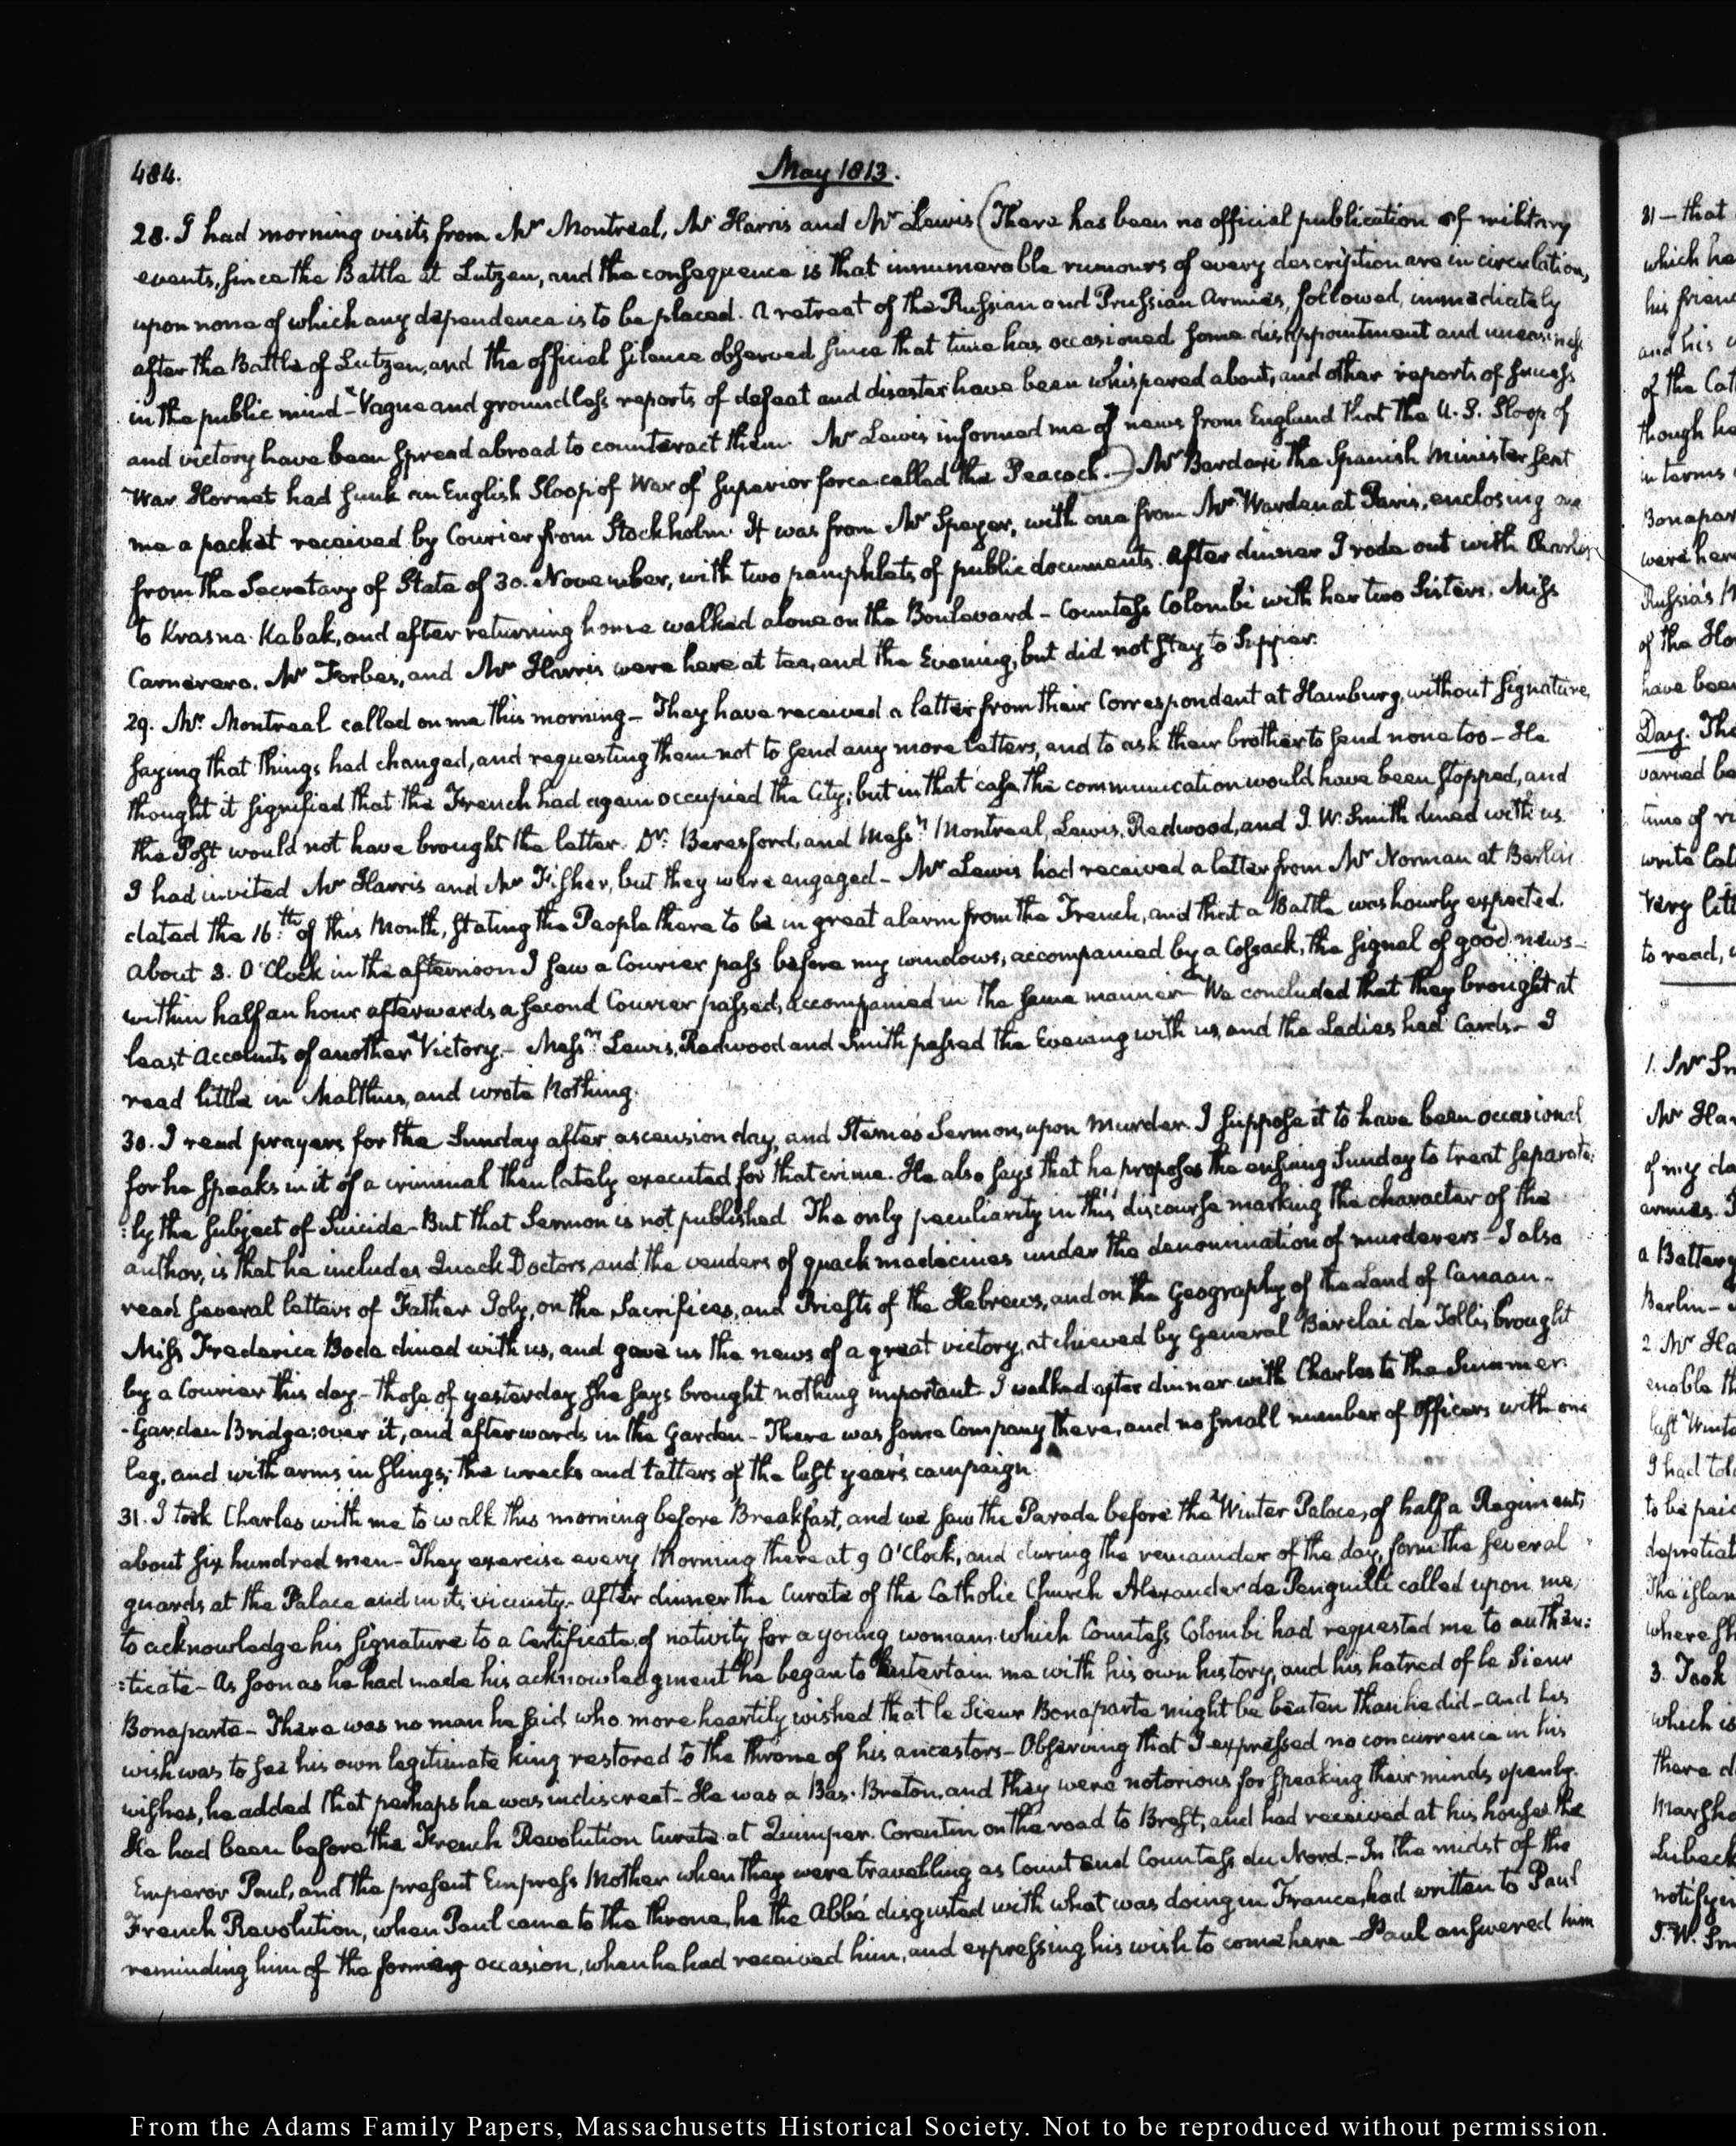 484.
May 1813.
28. I had morning visits from Mr Montréal, Mr Harris and Mr Lewis (There has been no official publication of military
events, since the Battle at Lutzen, and the consequence is that innumerable rumours of every description are in circulation,
upon none of which any dependence is to be placed. A retreat of the Russian and Prussian Armies, followed, immediately
after the Battle of Lutzen, and the official silence observed since that time has occasioned some disappointment and uneasiness
in the public mind - Vague and groundless reports of defeat and disaster have been whispered about, and other reports of success
and victory have been spread abroad to counteract them. Mr Lewis informed me of news from England that the U. S. Sloop of
War Hornet had sunk an English Sloop of War of superior force called the Peacock.-) Mr Bardaxi the Spanish Minister sent
me a packet received by Courier from Stockholm. It was from Mr Speyer, with one from Mr Warden at Paris, enclosing one
from the Secretary of State of 30. November, with two pamphlets of public documents. After dinner I rode out with Charles
to Krasna-Kabak, and after returning home walked alone on the Boulevard - Countess Colombi with her two Sisters, Miss
Carnevero, Mr Forbes, and Mr Harris were here at tea, and the Evening, but did not stay to Supper.
29. Mr. Montréal called on me this morning - They have received a letter from their Correspondent at Hamburg, without signature,
saying that things had changed, and requesting them not to send any more letters, and to ask their brother to send none too - He
thought it signified that the French had again occupied the City; but in that case the communication would have been stopped, and
the Post would not have brought the letter. Dr. Beresford, and Messrs Montréal, Lewis, Redwood, and J. W. Smith dined with us.
I had invited Mr Harris and Mr Fisher, but they were engaged - Mr Lewis had received a letter from Mr Norman at Berlin
dated the 16.th of this Month, stating the People there to be in great alarm from the French, and that a Battle was hourly expected.
About 3. O'Clock in the afternoon I saw a Courier pass before my windows, accompanied by a Cossack, the signal of good news -
within half an hour afterwards a second Courier passed, accompanied in the same manner - We concluded that they brought at
least Accounts of another Victory. - Messrs Lewis, Redwood and Smith passed the Evening with us, and the Ladies had Cards. - I
read little in Malthus, and wrote Nothing.
30. I read prayers for the Sunday after ascension day, and Sterne's Sermon, upon Murder. I suppose it to have been occasional
for he speaks in it of a criminal then lately executed for that crime. He also says that he proposes the ensuing Sunday to treat separate:
:ly the subject of Suicide - But that Sermon is not published. The only peculiarity in this discourse marking the character of the
author, is that he includes Quack Doctors, and the venders of quack medecines under the denomination of murderers - I also
read several letters of Father Joly, on the Sacrifices, and Priests of the Hebrews, and on the Geography of the Land of Canaan -
Miss Frederica Bode dined with us, and gave us the news of a great victory, atchieved by General Barclai de Tolli, brought
by a Courier this day - those of yesterday she says brought nothing important. I walked after dinner with Charles to the Summer
-Garden Bridge; over it, and afterwards in the Garden - There was some Company there, and no small number of Officers with one
leg, and with arms in slings; the wrecks and tatters of the last year's campaign.
31. I took Charles with me to walk this morning before Breakfast, and we saw the Parade before the Winter Palace, of half a Regiment;
about six hundred men - They exercise every Morning there at 9 O'Clock, and during the remainder of the day, form the several
guards at the Palace and in its vicinity. After dinner the Curate of the Catholic Church Alexander de Penguilli called upon me,
to acknowledge his signature to a Certificate of nativity for a young woman which Countess Colombi had requested me to authen:
:ticate - As soon as he had made his acknowledgment he began to entertain me with his own history, and his hatred of le Sieur
Bonaparte - There was no man he said who more heartily wished that le Sieur Bonaparte might be beaten than he did - and his
wish was to see his own legitimate king restored to the throne of his ancestors - Observing that I expressed no concurrence in his
wishes, he added that perhaps he was indiscreet - He was a Bas-Breton, and they were notorious for speaking their minds openly.
He had been before the French Revolution Curate at Quimper-Corentin on the road to Brest, and had received at his house the
Emperor Paul, and the present Empress Mother when they were travelling as Count and Countess du Nord - In the midst of the
French Revolution, when Paul came to the throne, he the Abbé disgusted with what was doing in France, had written to Paul
reminding him of the former occasion, when he had received him, and expressing his wish to come here - Paul answered him
31 - that
which he
his frien
and his
of the Cat
though he
in terms
Bonapar
were her
Russia's
of the Ho
have been
Day. The
varied be
time of
write
very litt
to read,
1. Mr Sm
Mr Har
of my
armies.
a Battery
Berlin -
2. Mr Ha
enable th
last Winte
I had tol
to be paid
depretiat
The islan
where sh
3. Took
which is
there
Marsha
Lubeck
notifyin
J. W. Sm
From the Adams Family Papers, Massachusetts Historical Society. Not to be reproduced without permission.